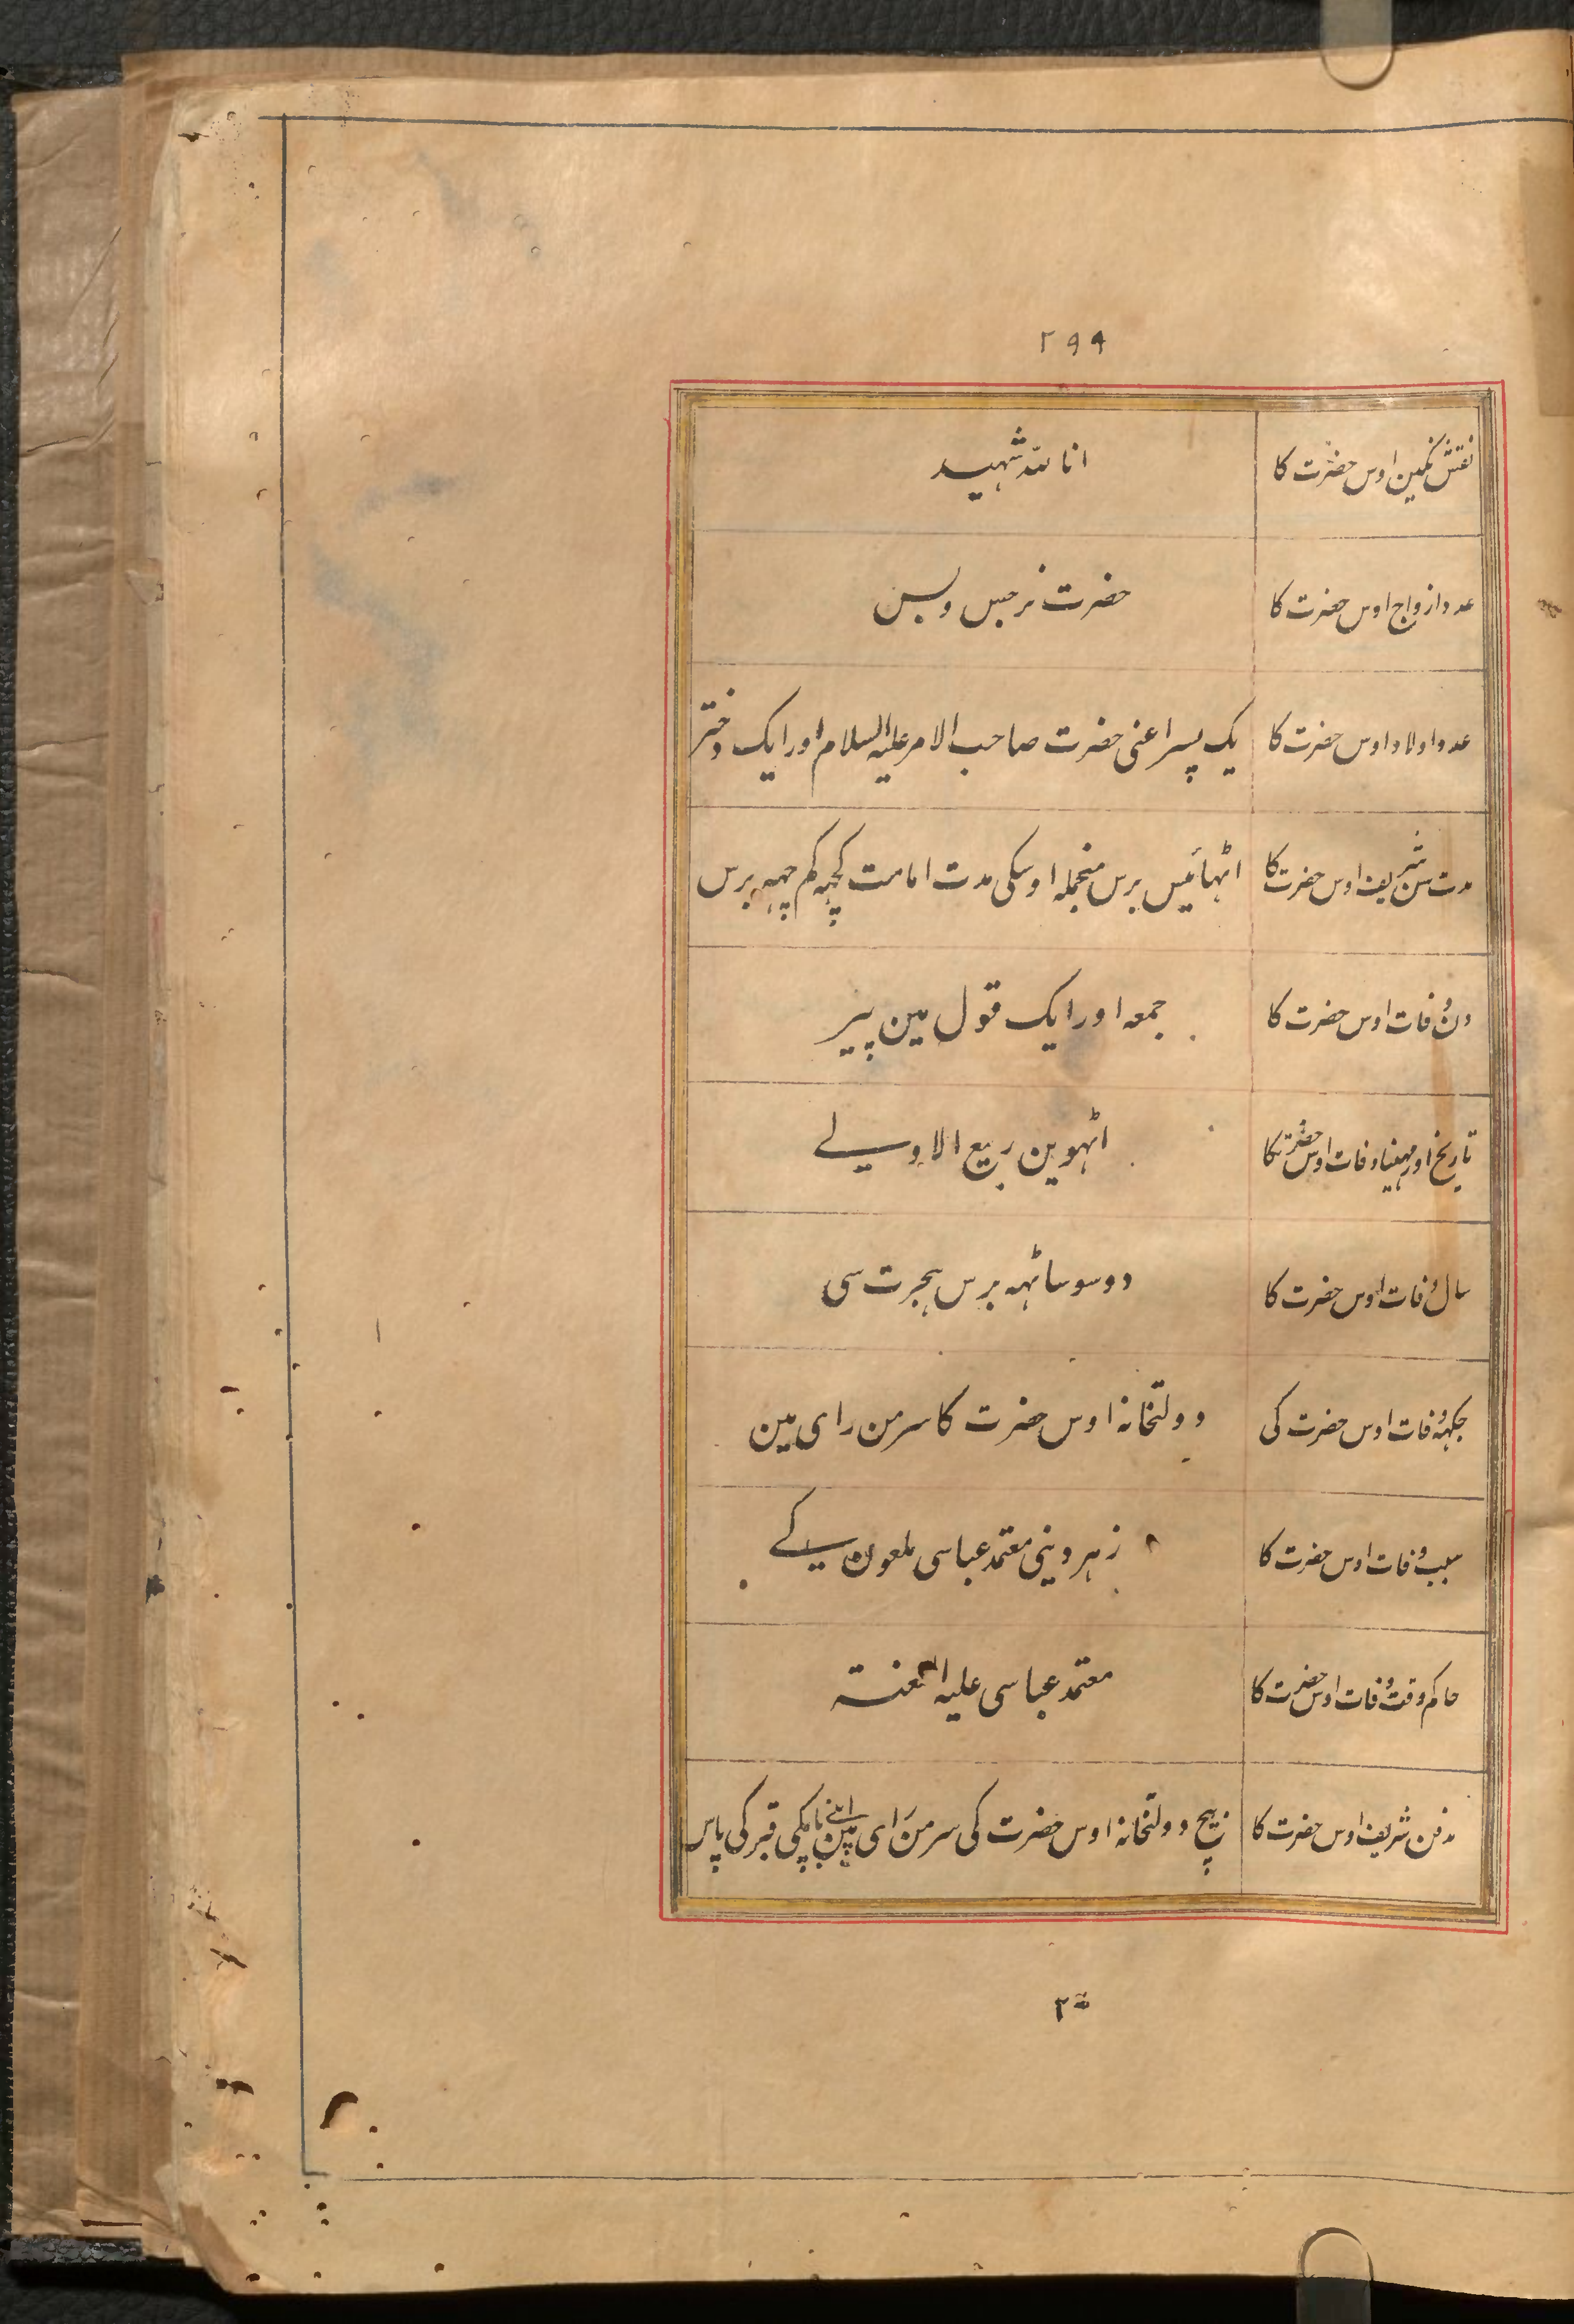 ۲۹۹
نقش نگین اوس حضرت کا انا للہ شہید
عدد ازواج اوس حضرت کا حضرت نرجس و بس
عدد اولاد اوس حضرت کا یک پسر اعنی حضرت صاحب الامر علیہ السلام اور ایک دختر
مدت سن شریف اوس حضرت کا اٹہائیس برس منجملہ اوسکی مدت امامت کچہہ کم چہہ برس
دن وفات اوس حضرت کا جمعہ اور ایک قول مین پیر
تاریخ اور مہینا وفات اوس حضرت کا اٹہوین ربیع الاولے
سال وفات اوس حضرت کا دو سو ساٹہہ برس ہجرت سی
جکہہ وفات اوس حضرت کی دولتخانہ اوس حضرت کا سر من رای مین
سبب وفات اوس حضرت کا زہر دینی معتمد عباسی ملعون سیکے
حاکم وقت وفات اوس حضرت کا معتمد عباسی علیہ اللعنتہ
مدفن شریف اوس حضرت کا بیچ دولتخانہ اوس حضرت کی سر من رای مین اپنے باپکی قبر کی پاس